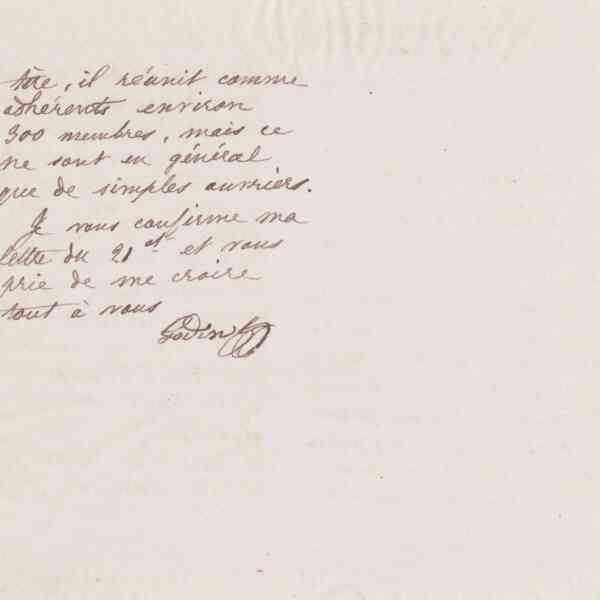 tête, il réunit comme
adhérents environ
300 membres, mais ce
ne sont en général
que de simples ouvriers.
Je vous confirme ma
lettre du 21 ct et vous
prie de me croire
tout à vous
Godin